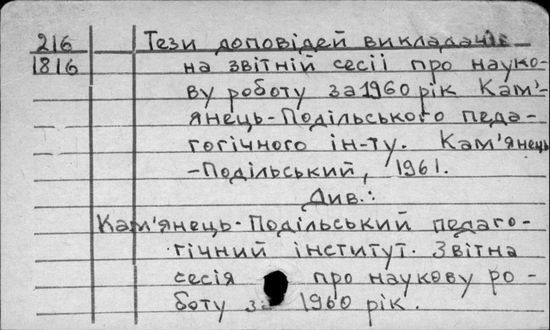 216 Тези доповідей викладачів
1816 на звітній сесії про науко-
ву роботу за 1960 рік Кам'-
янець-Подільського педа-
гогічного ін-ту. Кам'янець
-Подільський, 1961.
Див.:
Кам'янець-Подільський педаго-
гічний інститут. Звітна
сесія про наукову ро-
боту за 1960 рік.